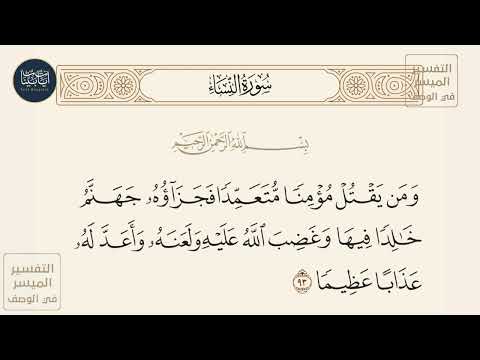 التفسير
الميسر
في الوصف
سُورَةُ النِّسَاءِ
بِسْمِ اللَّهِ الرَّحْمَٰنِ الرَّحِيمِ
وَمَن يَقْتُلْ مُؤْمِنًا مُّتَعَمِّدًا فَجَزَآؤُهُۥ جَهَنَّمُ
خَٰلِدًا فِيهَا وَغَضِبَ ٱللَّهُ عَلَيْهِ وَلَعَنَهُۥ وَأَعَدَّ لَهُۥ
عَذَابًا عَظِيمًا ٩٣
التفسير
الميسر
في الوصف